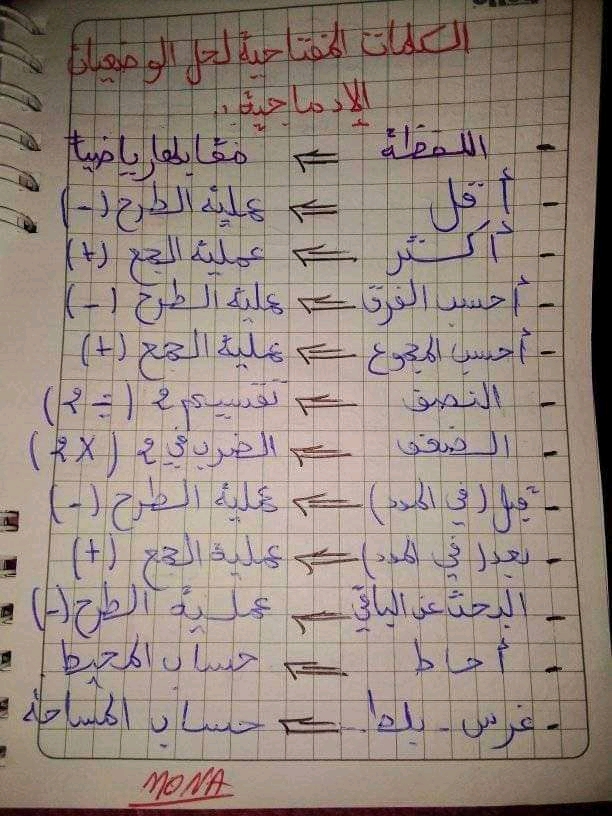 الكلمات المفتاحية لحل الوضعيات
الإدماجية..
- اللفظة ⇐ مقابلها رياضيا
- أقل ⇐ عملية الطرح (-)
- أكثر ⇐ عملية الجمع (+)
- أحسب الفرق ⇐ عملية الطرح (-)
- أحسب المجموع ⇐ عملية الجمع (+)
- النصف ⇐ تقسيم 2 (÷ 2)
- الضعف ⇐ الضرب في 2 (2X)
- قبل (في المدد) ⇐ عملية الطرح (-)
- بعد (في المدد) ⇐ عملية الجمع (+)
- البحث عن الباقي ⇐ عملية الطرح (-)
- أحاط ⇐ حساب المحيط
- غرس - بلط.. ⇐ حساب المساحة
MONA